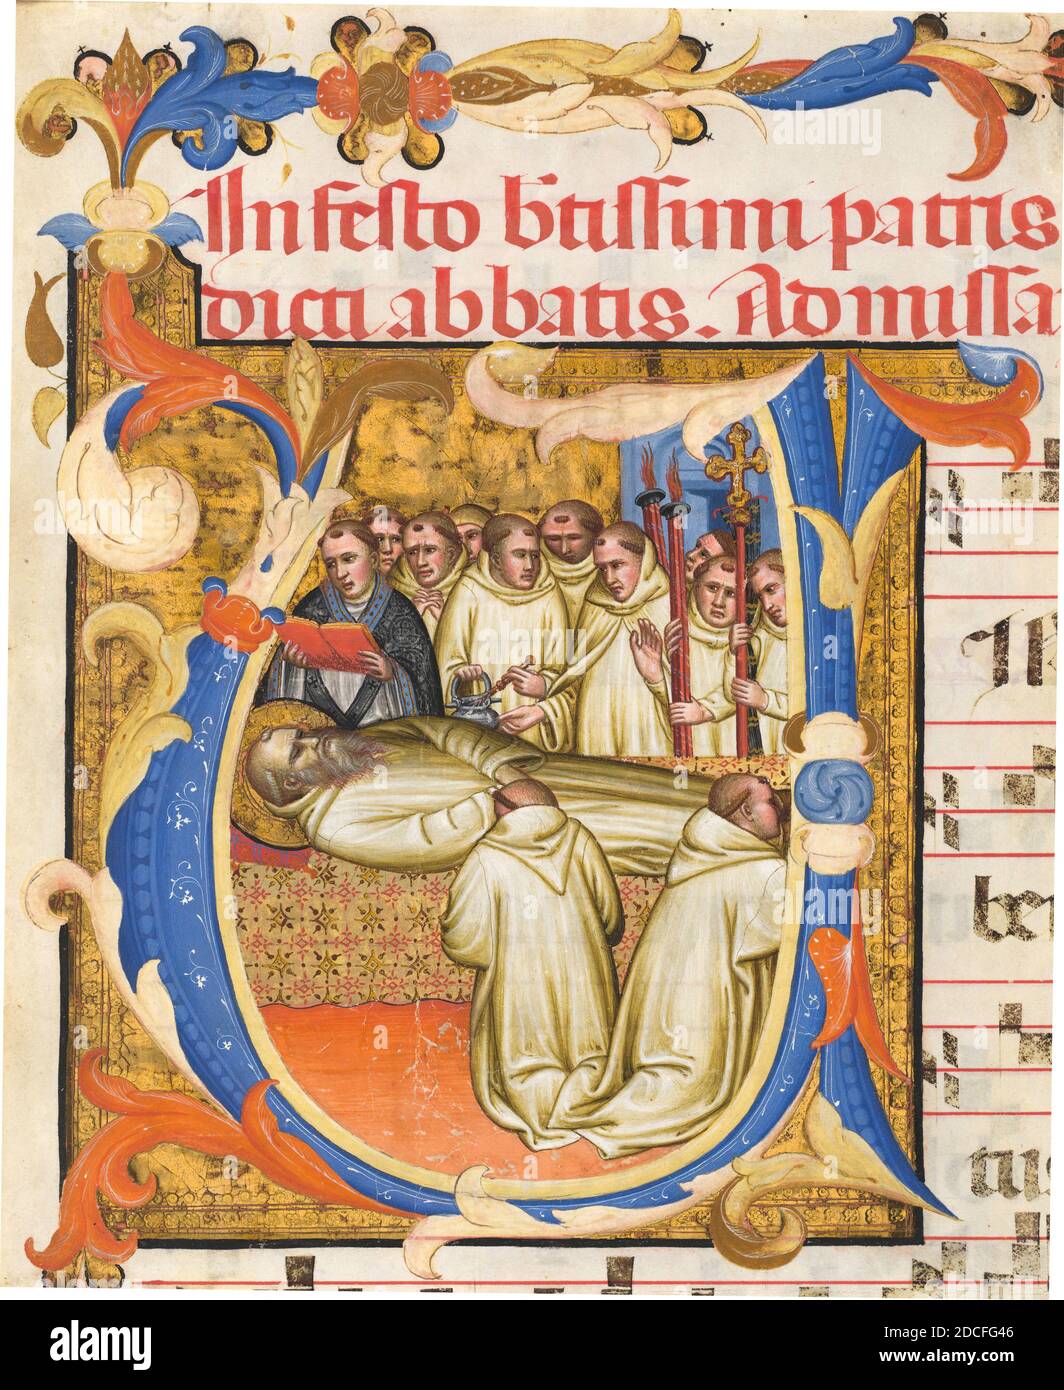 In festo b̄tissimi patris
dicti abbatis. Ad missa
alamy
Image ID: 2DCFG46
www.alamy.com